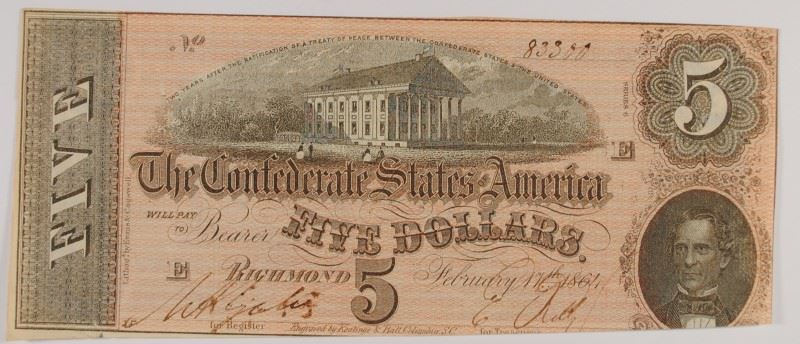 No 83390
TWO YEARS AFTER THE RATIFICATION OF A TREATY OF PEACE BETWEEN THE CONFEDERATE STATES & THE UNITED STATES
5
SERIES 6
FIVE
E
The Confederate States of America
WILL PAY
TO Bearer
FIVE DOLLARS.
E
RICHMOND 5 February 17th 1864.
for Register
Engraved by Keatinge & Ball, Columbia, S.C.
for Treasurer